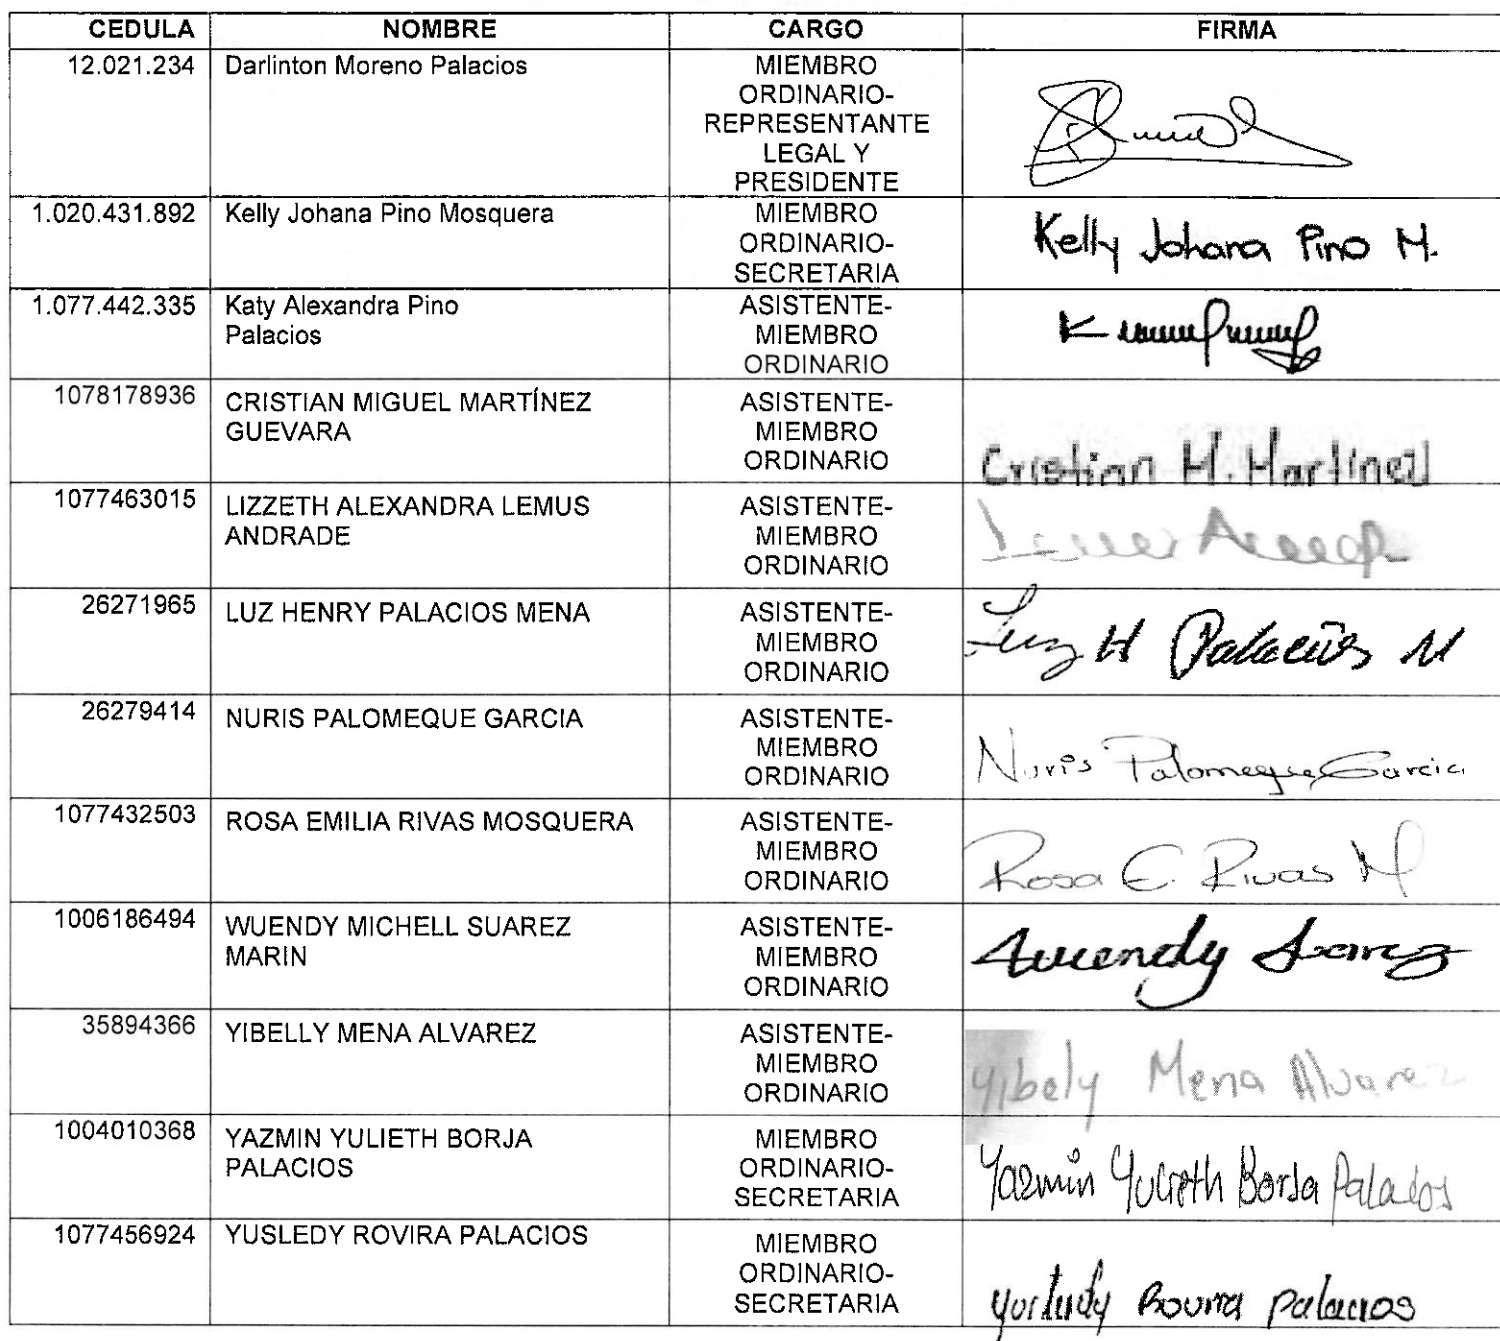 CEDULA NOMBRE CARGO FIRMA
12.021.234 Darlinton Moreno Palacios MIEMBRO
ORDINARIO-
REPRESENTANTE
LEGAL Y
PRESIDENTE
1.020.431.892 Kelly Johana Pino Mosquera MIEMBRO
ORDINARIO-
SECRETARIA
Kelly Johana Pino M.
1.077.442.335 Katy Alexandra Pino
Palacios
ASISTENTE-
MIEMBRO
ORDINARIO
1078178936 CRISTIAN MIGUEL MARTÍNEZ
GUEVARA
ASISTENTE-
MIEMBRO
ORDINARIO
Cristian M. Martínez
1077463015 LIZZETH ALEXANDRA LEMUS
ANDRADE
ASISTENTE-
MIEMBRO
ORDINARIO
26271965 LUZ HENRY PALACIOS MENA ASISTENTE-
MIEMBRO
ORDINARIO
Luz H Palacios M
26279414 NURIS PALOMEQUE GARCIA ASISTENTE-
MIEMBRO
ORDINARIO
Nuris Palomeque Garcia
1077432503 ROSA EMILIA RIVAS MOSQUERA ASISTENTE-
MIEMBRO
ORDINARIO
Rosa E. Rivas M
1006186494 WUENDY MICHELL SUAREZ
MARIN
ASISTENTE-
MIEMBRO
ORDINARIO
Wuendy Suarez
35894366 YIBELLY MENA ALVAREZ ASISTENTE-
MIEMBRO
ORDINARIO
Yibely Mena Alvarez
1004010368 YAZMIN YULIETH BORJA
PALACIOS
MIEMBRO
ORDINARIO-
SECRETARIA
Yazmin Yulieth Borja Palacios
1077456924 YUSLEDY ROVIRA PALACIOS MIEMBRO
ORDINARIO-
SECRETARIA
Yusledy Rovira palacios